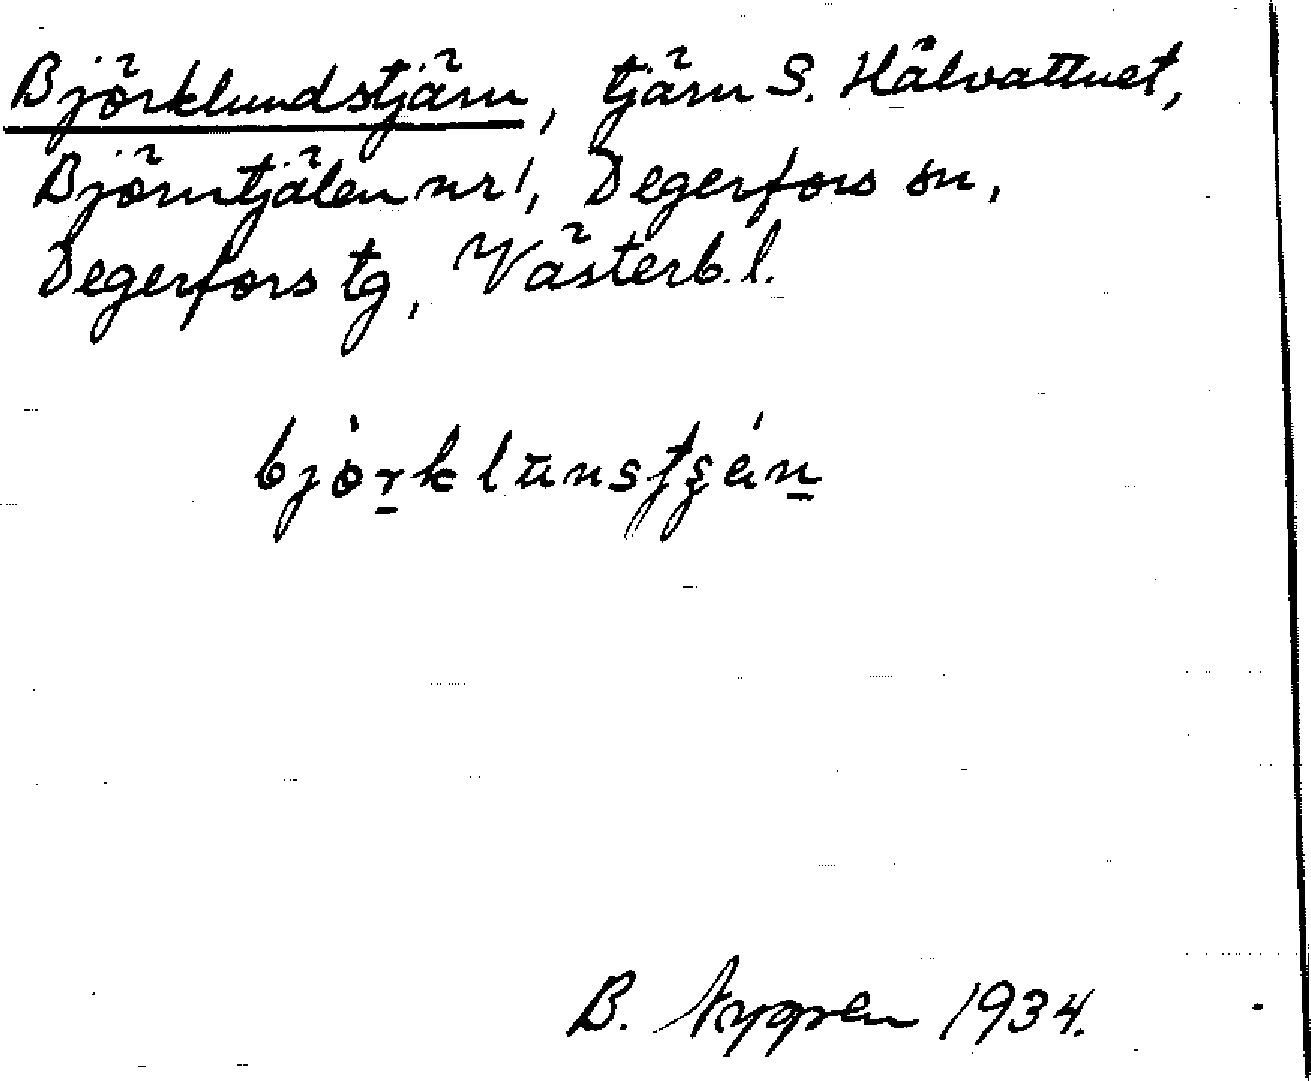 Björklundstjärn, tjärn S. Hälvattnet,
Björntjälen nr 1, Degerfors sn,
Degerfors tg, Västerb. l.
björklunstşän
B. Nygren 1934.